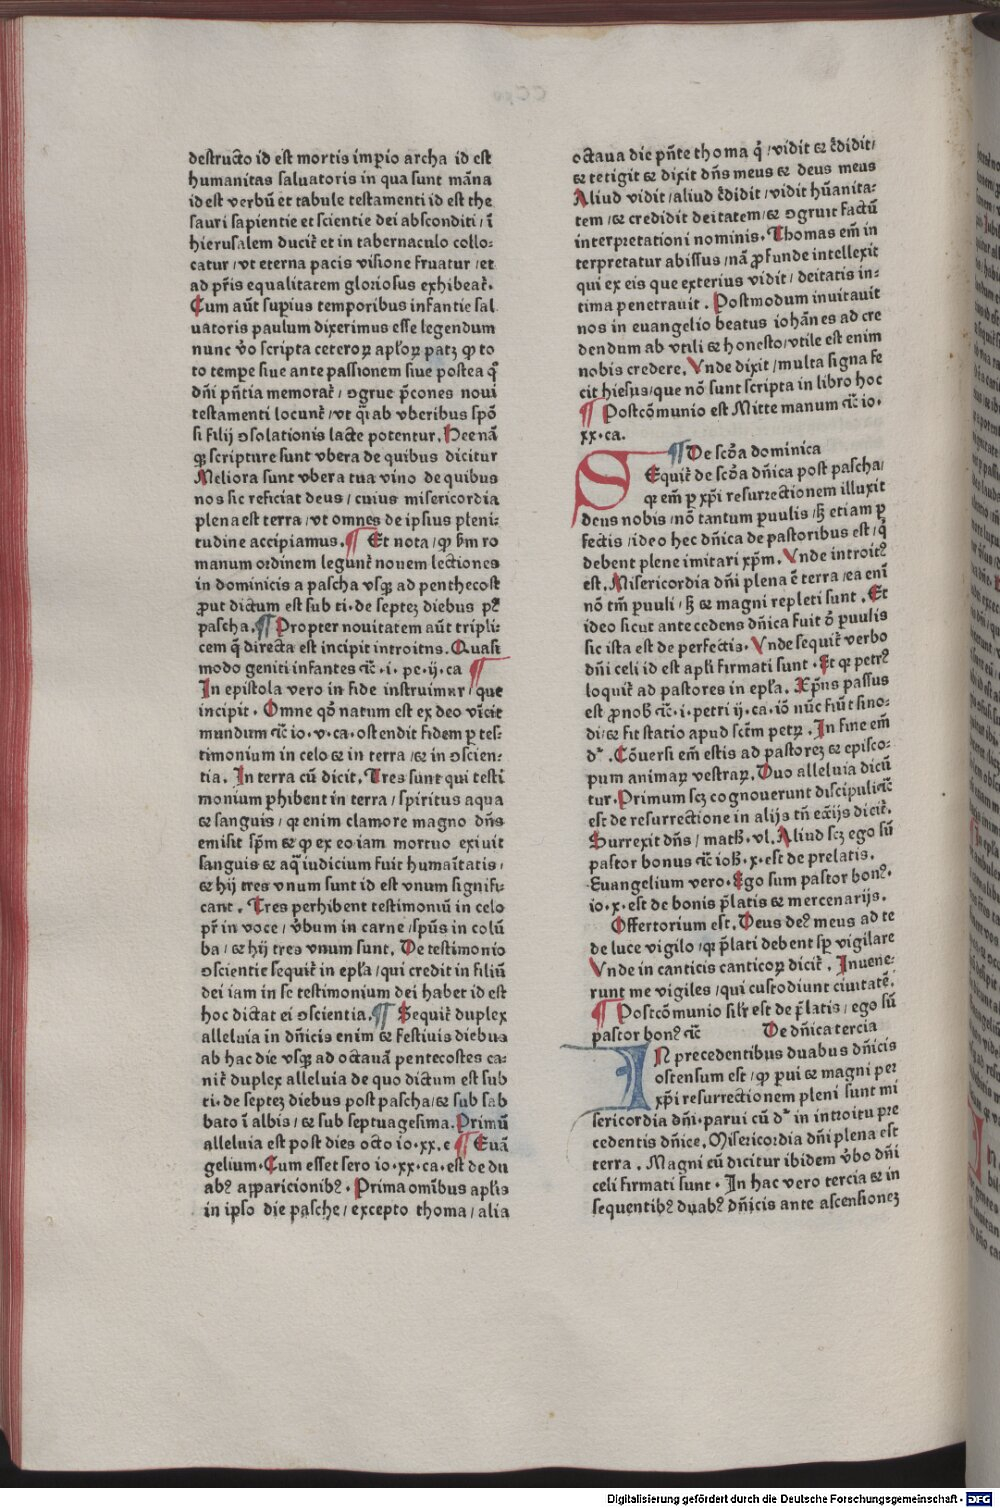 destructo id est mortis impio archa id est
humanitas saluatoris in qua sunt mãna
id est verbũ et tabule testamenti id est the
sauri sapientie et scientie dei absconditi / ĩ
hierusalem ducit̃ et in tabernaculo collo⸗
catur / vt eterna pacis visione fruatur / et
ad pr̃is equalitatem gloriosus exhibeat̃.
Cum aũt supius temporibus infantie sal
uatoris paulum dixerimus esse legendum
nunc v̾o scripta ceteroꝝ apl̃oꝝ patꝫ ꝙ to
to tempe siue ante passionem siue postea q̃
dñi pñtia memorat̃ / ꝯgrue p̃cones noui
testamenti locunt̃ / vt q̃i ab vberibus spõ
si filij ꝯsolationis lacte potentur. Hee nã
qꝫ scripture sunt vbera de quibus dicitur
Meliora sunt vbera tua vino de quibus
nos sic reficiat deus / cuius misericordia
plena est terra / vt omnes de ipsius pleni⸗
tudine accipiamus. ¶ Et nota / ꝙ b̃m ro
manum ordinem legunt̃ nouem lectiones
in dominicis a pascha vsqꝫ ad penthecost̃
ꝓut dictum est sub ti. de septeꝫ diebus pꝰ
pascha. ¶ Propter nouitatem aũt tripli⸗
cem q̃ directa est incipit introitus. Quasi
modo geniti infantes ⁊c̃. i. pe. ij. ca ¶
In epistola vero in fide instruimur / que
incipit. Omne qõ natum est ex deo vĩcit
mundum ⁊c̃ io. v. ca. ostendit fidem ꝑ tes⸗
timonium in celo ⁊ in terra / ⁊ in ꝯscien⸗
tia. In terra cũ dicit. Tres sunt qui testi
monium ꝑhibent in terra / spiritus aqua
⁊ sanguis / qꝛ enim clamore magno dñs
emisit sp̃m ⁊ ꝙ ex eo iam mortuo exiuit
sanguis ⁊ aq̃ iudicium fuit humaĩtatis /
⁊ hij tres vnum sunt id est vnum signifi⸗
cant. Tres perhibent testimoniũ in celo
pr̃ in voce / v̾bum in carne / sp̃us in colũ
ba / ⁊ hij tres vnum sunt. De testimonio
ꝯscientie sequit̃ in epl̃a / qui credit in filiũ
dei iam in se testimonium dei habet id est
hoc dictat ei ꝯscientia. ¶ Sequit̃ duplex
alleluia in dñicis enim ⁊ festiuis diebus
ab hac die vsqꝫ ad octauã pentecostes ca⸗
nit̃ duplex alleluia de quo dictum est sub
ti. de septeꝫ diebus post pascha / ⁊ sub sab
bato ĩ albis / ⁊ sub septuagesima. Primũ
alleluia est post dies octo io. xx. c ¶ Euã
gelium. Cum esset sero io. xx. ca. est de du
abꝰ apparicionibꝰ. Prima omĩbus apl̃is
in ipso die pasche / excepto thoma / alia
octaua die pñte thoma q̃ / vidit ⁊ c̃didit /
⁊ tetigit ⁊ dixit dñs meus ⁊ deus meus
Aliud vidit / aliud c̃didit / vidit hũanita⸗
tem / ⁊ credidit deitatem / ⁊ ꝯgruit factũ
interpretationi nominis. Thomas em̃ in
terpretatur abissus / nã ꝓfunde intellexit
qui ex eis que exterius vidit / deitatis in⸗
tima penetrauit. Postmodum inuitauit
nos in euangelio beatus iohãnes ad cre
dendum ab vtili ⁊ honesto / vtile est enim
nobis credere. Vnde dixit / multa signa fe
cit hiesus / que nõ sunt scripta in libro hoc
¶ Postcõmunio est Mitte manum ⁊c̃ io.
xx. ca.
¶ De scd̃a dominica
SEquit̃ de scd̃a dñica post pascha /
qꝛ em̃ ꝑ xp̃i resurrectionem illuxit
deus nobis / nõ tantum ꝑuulis / sꝫ etiam ꝑ
fectis / ideo hec dñica de pastoribus est / q̃
debent plene imitari xp̃m. Vnde introitꝰ
est. Misericordia dñi plena ẽ terra / ea enĩ
nõ tm̃ ꝑuuli / sꝫ ⁊ magni repleti sunt. Et
ideo sicut antecedens dñica fuit õ ꝑuulis
sic ista est de perfectis. Vnde sequit̃ verbo
dñi celi id est apl̃i firmati sunt. Et qꝛ petrꝰ
loquit̃ ad pastores in epl̃a. Xp̃us passus
est ꝓ nob̃ ⁊c̃. i. petri ij. ca. iõ nũc fiũt sino⸗
di / ⁊ fit statio apud sctm̃ petꝝ. In fine em̃
dʳ. Cõuersi em̃ estis ad pastoreꝫ ⁊ episco⸗
pum animaꝝ vestraꝝ. Duo alleluia dicũ
tur. Primum scꝫ cognouerunt discipuli ⁊c̃
est de resurrectione in alijs tñ ecc̃ijs dicit̃.
Surrexit dñs / math̃. vl. Aliud scꝫ ego sũ
pastor bonus ⁊c̃ ioh̃. x. est de prelatis.
Euangelium vero. Ego sum pastor bonꝰ.
io. x. est de bonis p̃latis ⁊ mercenarijs.
Offertorium est. Deus deꝰ meus ad te
de luce vigilo / qꝛ p̃lati debent sꝑ vigilare
Vnde in canticis canticoꝝ dicit̃. Inuene⸗
runt me vigiles / qui custodiunt ciuitatẽ.
¶ Postcõmunio sil̃r est de p̃latis / ego sũ
pastor bonꝰ ⁊c̃ De dñica tercia
IN precedentibus duabus dñicis
ostensum est / ꝙ ꝑui ⁊ magni per
xp̃i resurrectionem pleni sunt mi
sericordia dñi. parui cũ dʳ in introitu pre
cedentis dñice. Misericordia dñi plena est
terra. Magni cũ dicitur ibidem v̾bo dñi
celi firmati sunt. In hac vero tercia ⁊ in
sequentibꝰ duabꝰ dñicis ante ascensioneꝫ
Digitalisierung gefördert durch die Deutsche Forschungsgemeinschaft - DFG